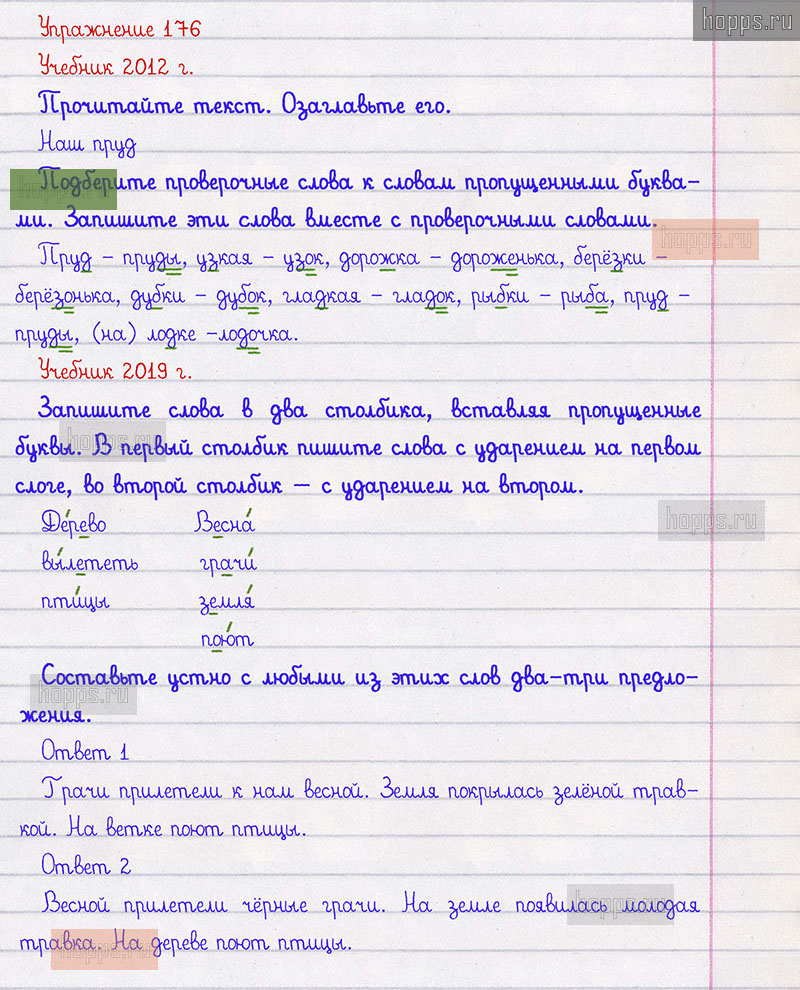 hopps.ru
Упражнение 176
Учебник 2012 г.
Прочитайте текст. Озаглавьте его.
Наш пруд
Подберите проверочные слова к словам пропущенными буква-
ми. Запишите эти слова вместе с проверочными словами.
hopps.ru
Пруд – пруды, узкая – узок, дорожка – дороженька, берёзки –
берёзонька, дубки – дубок, гладкая – гладок, рыбки – рыба, пруд –
пруды, (на) лодке –лодочка.
Учебник 2019 г.
Запишите слова в два столбика, вставляя пропущенные
буквы. В первый столбик пишите слова с ударением на первом
hopps.ru
слоге, во второй столбик – с ударением на втором.
hopps.ru
Де́рево Весна́
вы́лететь грачи́
пти́цы земля́
пою́т
Составьте устно с любыми из этих слов два-три предло-
hopps.ru
жения.
Ответ 1
Грачи прилетели к нам весной. Земля покрылась зелёной трав-
кой. На ветке поют птицы.
Ответ 2
Весной прилетели чёрные грачи. На земле появилась молодая
hopps.ru
травка. На дереве поют птицы.
hopps.ru